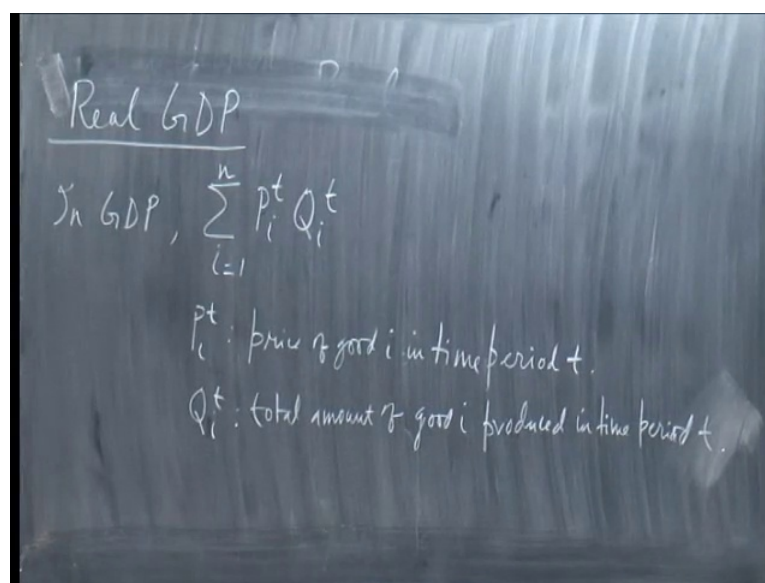 Real GDP
In GDP, $\sum_{i=1}^{n} P_i^t Q_i^t$
$P_i^t$ : price of good i in time period t.
$Q_i^t$ : total amount of good i produced in time period t.